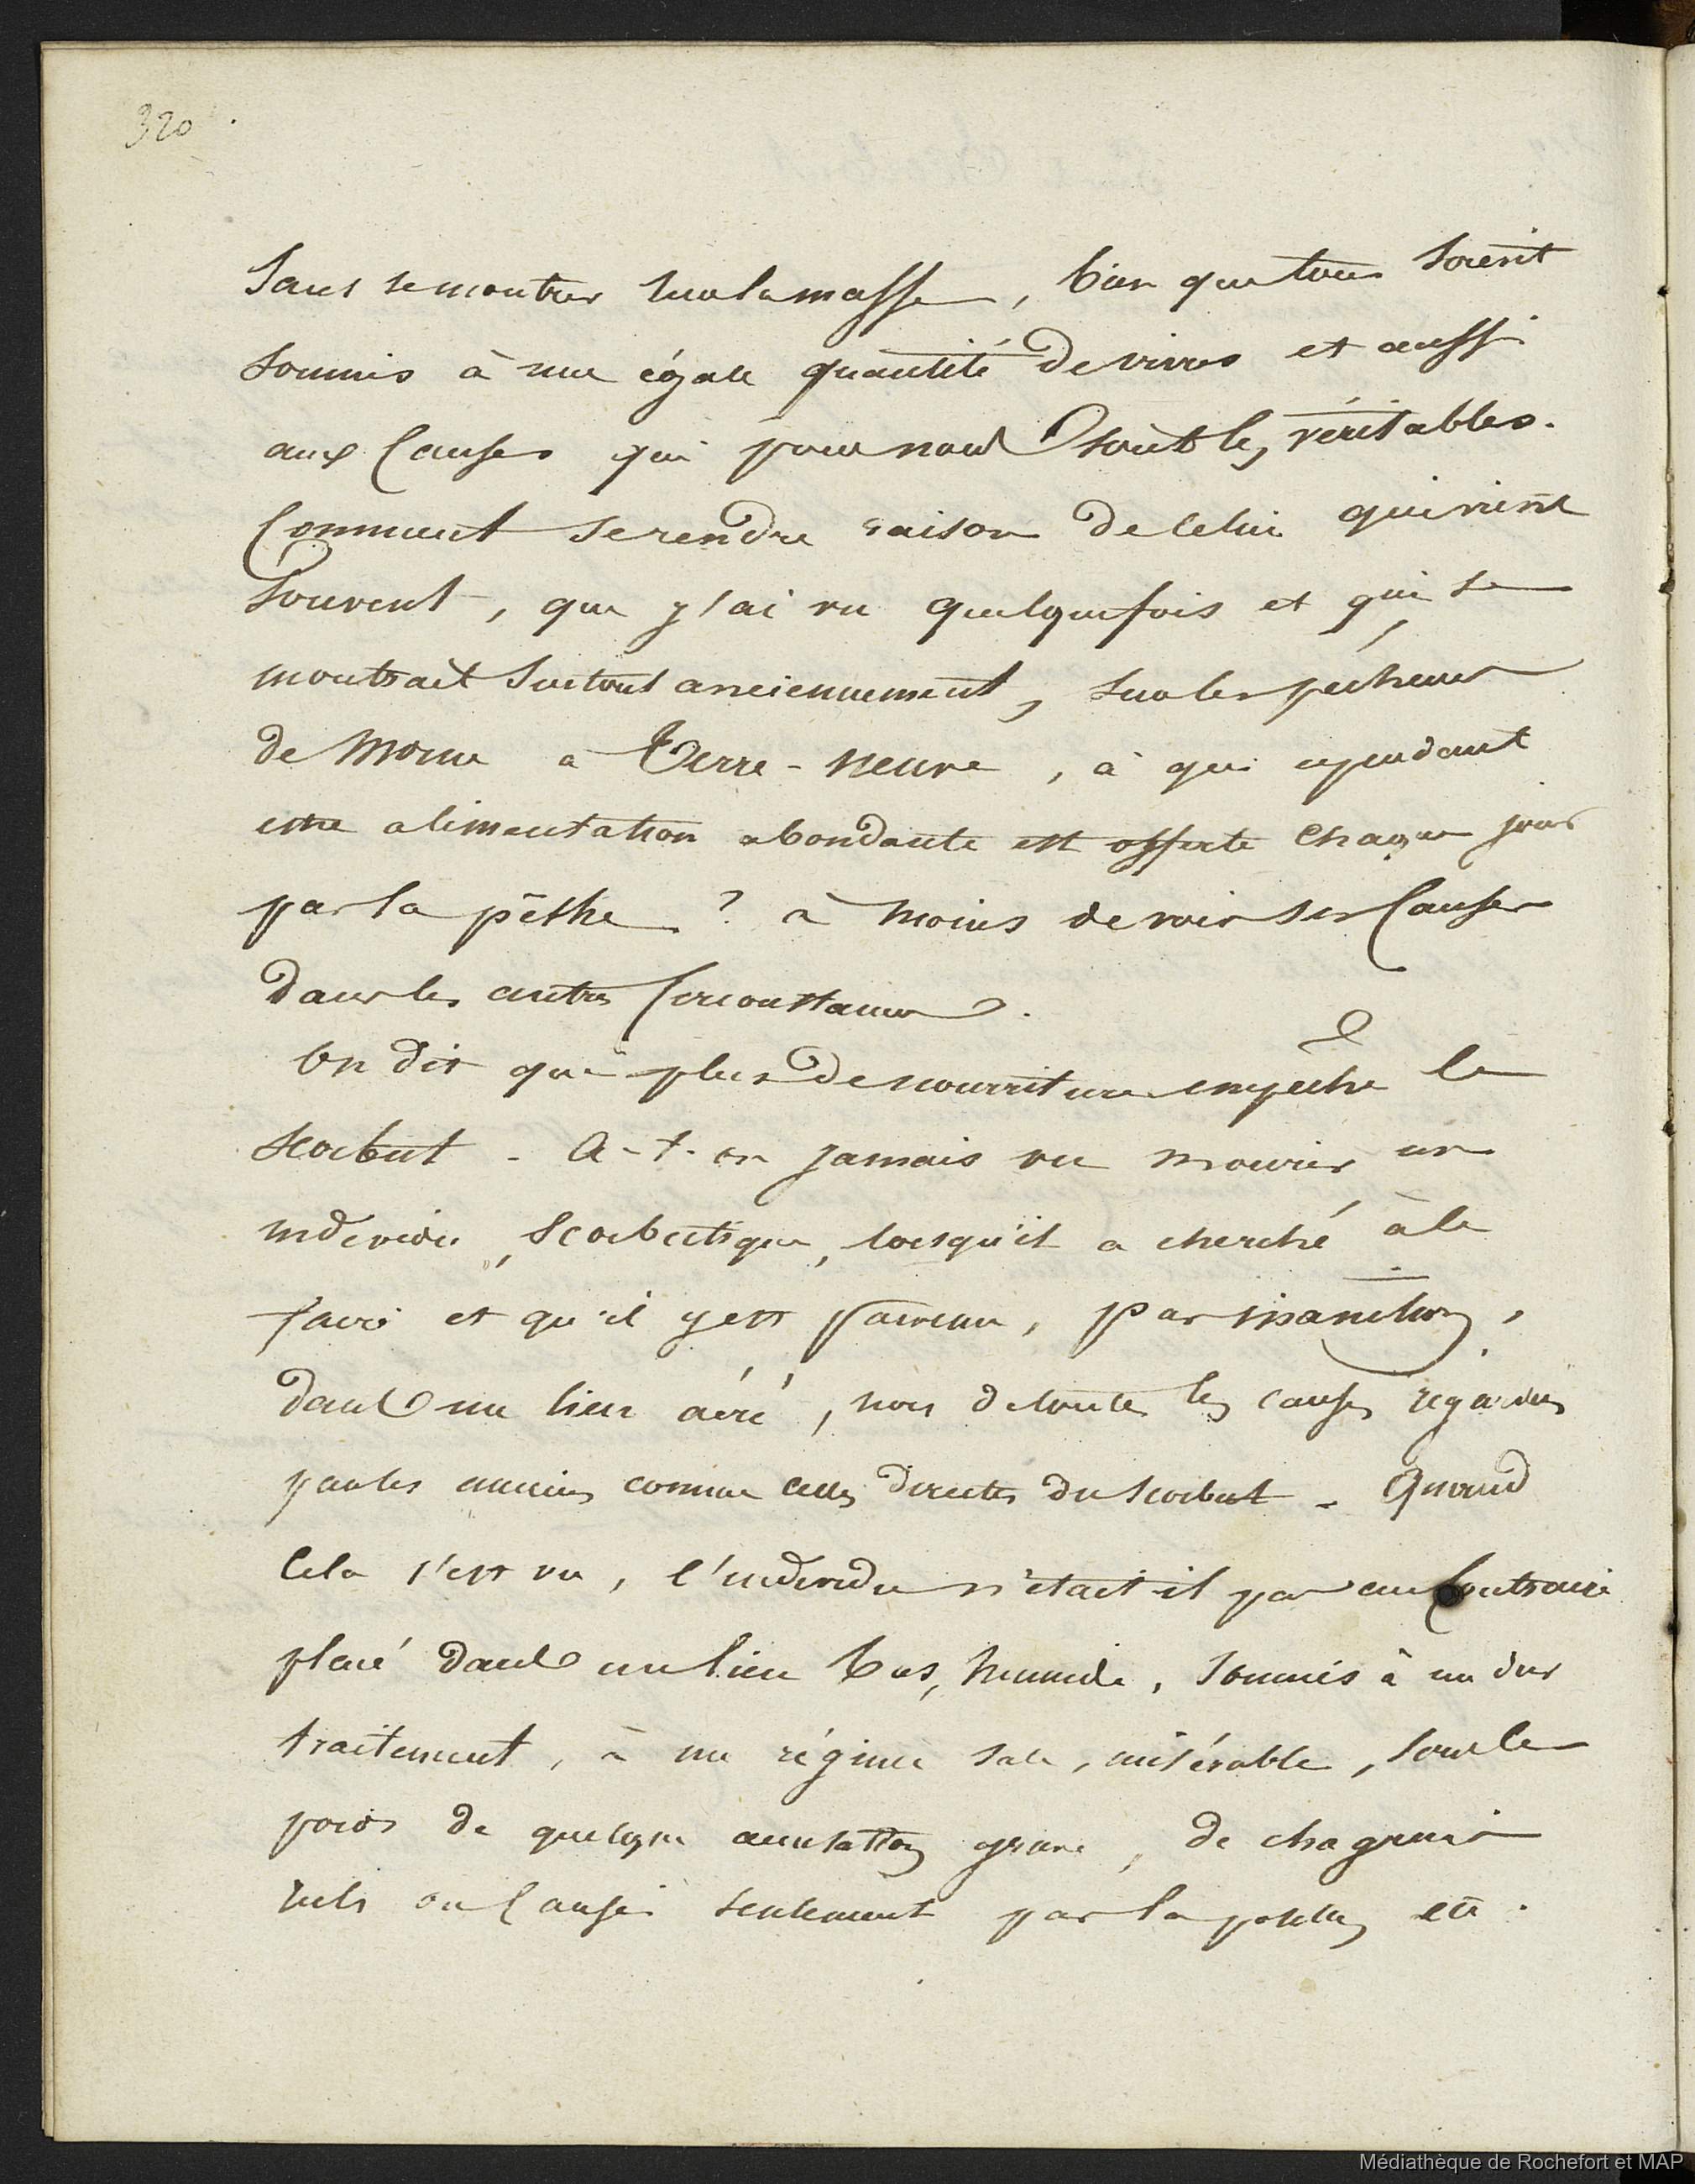 320.
Sans se montrer sur la masse, bien que tous soient
soumis à une égale quantité de vivres et aussi
aux causes qui pour nous sont les véritables.
Comment se rendre raison de celui qui vient
souvent, que j'ai vu quelquefois et qui se
montrait surtout anciennement, sur les pécheurs
de morue a Terre-neuve, à qui cependant
une alimentation abondante est offerte chaque jour
par la pêche ? à moins de voir ses causes
dans les autres circonstances.
On dit que plus de nourriture empêche le
scorbut - A-t-on jamais vu mourir un
individu, scorbutique, lorsqu'il a cherché à le
faire et qu'il y est parvenu, par inanition,
dans un lieu aéré, hors de toutes les causes regardées
par les anciens comme celles directes du scorbut - Quand
cela s'est vu, l'individu n'était-il pas au contraire
placé dans un lieu bas, humide, soumis à un dur
traitement, à un régime sale, misérable, sous le
poids de quelque accusation grave, de chagrins
réels ou causés seulement par la etc.
Médiathèque de Rochefort et MAP